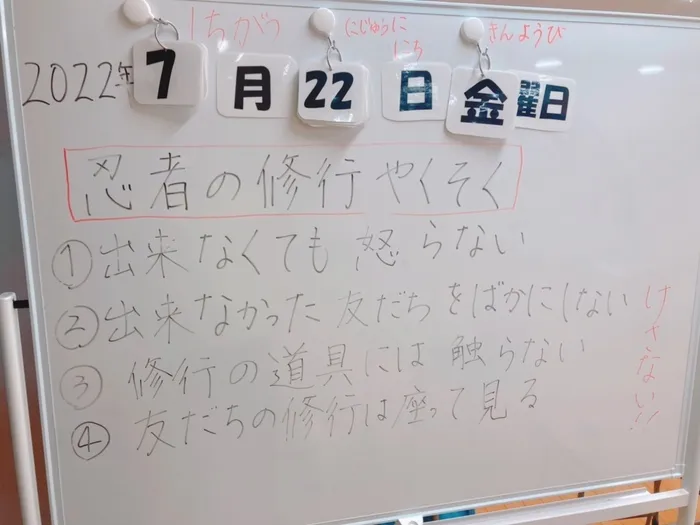 1ちがつ にじゅうに にち きんようび
2022年 7 月 22 日 金 曜日
忍者の修行やくそく
①出来なくても 怒らない
②出来なかった友だちをばかにしない
③修行の道具には触らない
④友だちの修行は座って見る
けさない!!